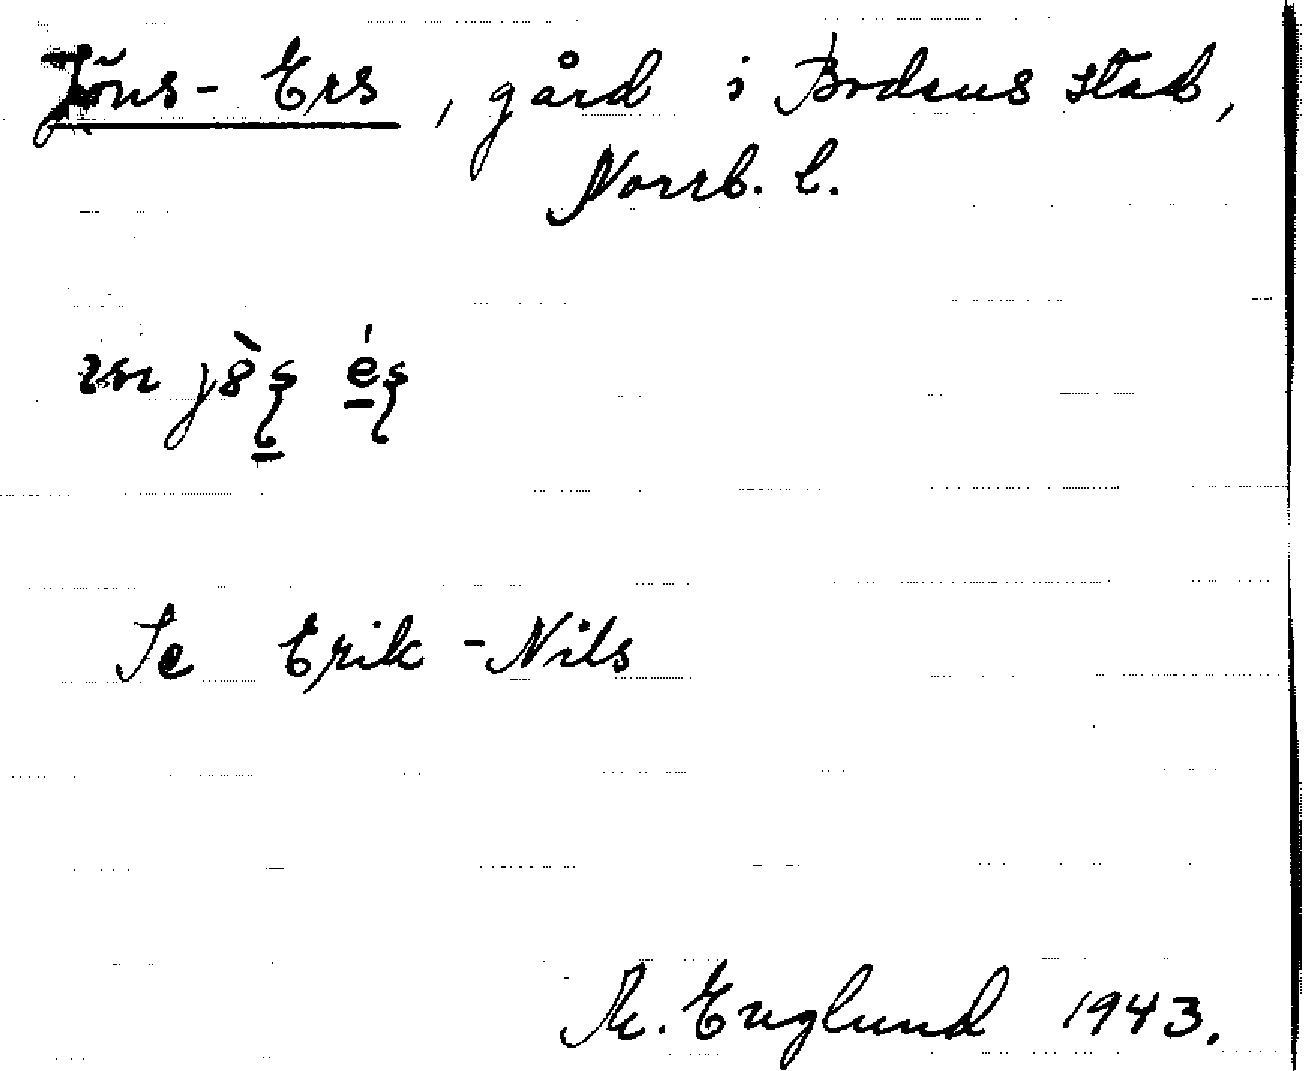 Jöns-Ers, gård i Bodens stad,
Norrb. l.
Se Erik-Nils
M. Englund 1943.